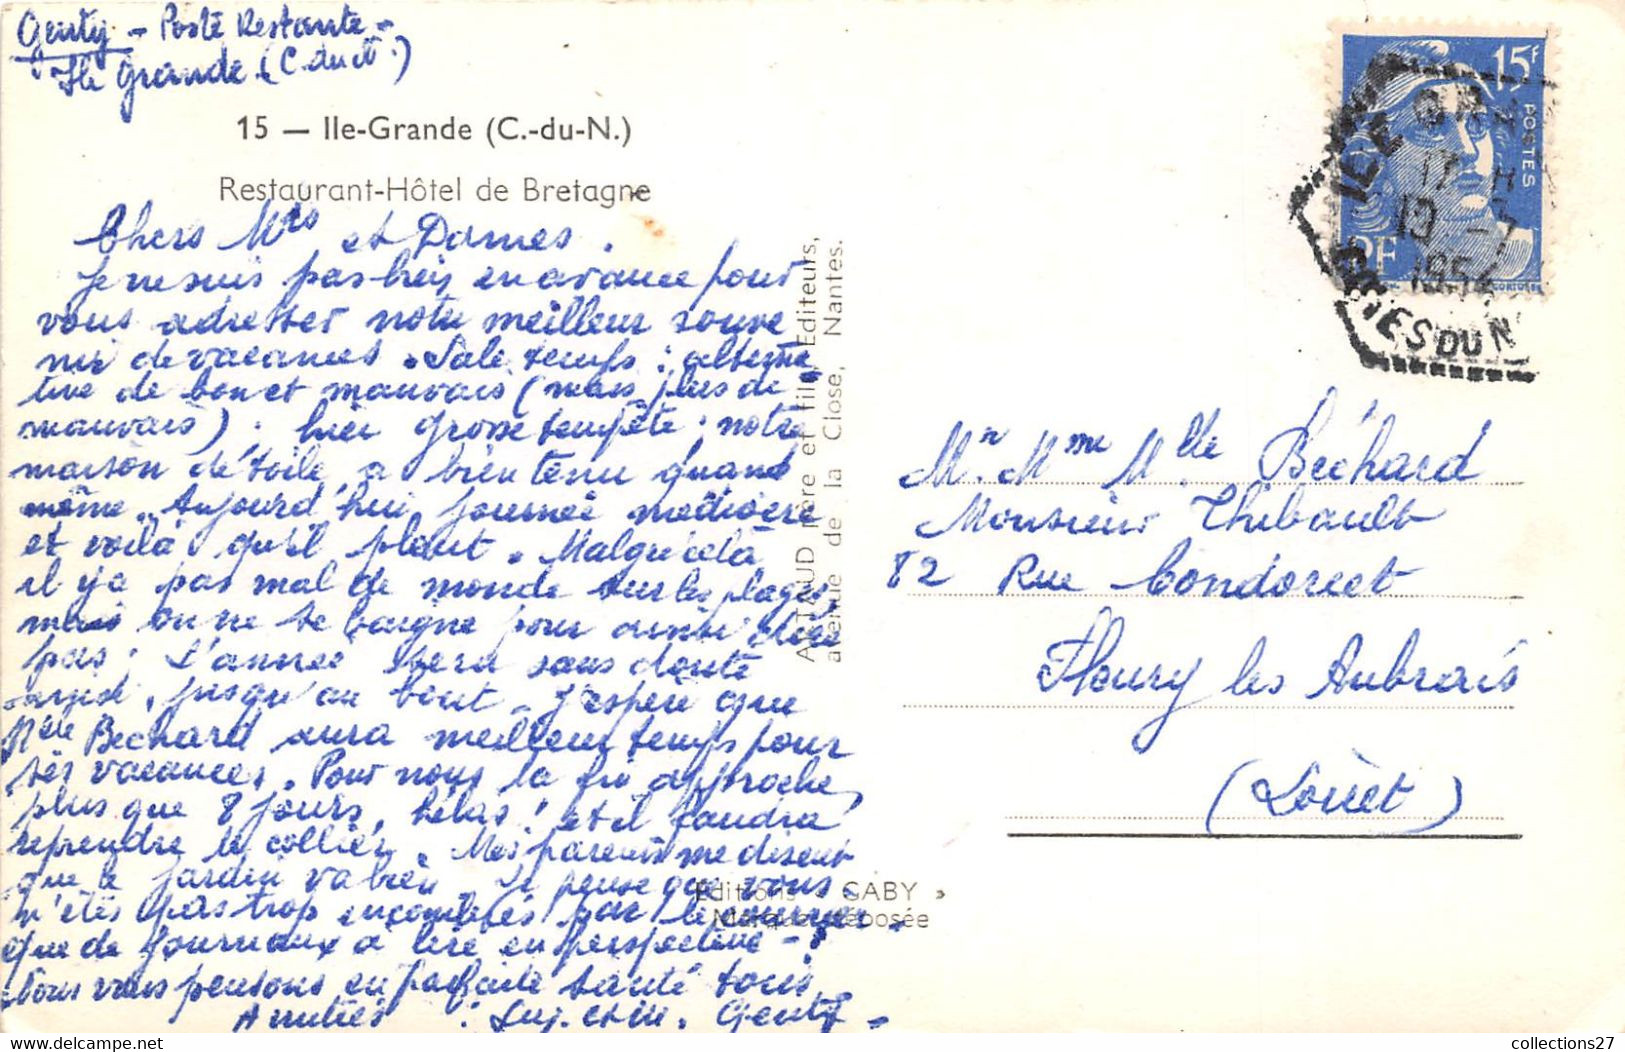 Genty - Poste Restante -
Ile Grande (C du N.)
15 — Ile-Grande (C.-du-N.)
Restaurant-Hôtel de Bretagne
Chers Mrs et Dames.
Je ne suis pas très en avance pour
vous adresser notre meilleur souve
nir de vacances. Sale temps : alterna
tive de bon et mauvais (mais plus de
mauvais). hier grosse tempête : notre
maison de toile a bien tenu quand
même. Aujourd'hui, journée médiocre
et voilà qu'il pleut. Malgré cela
il y a pas mal de monde sur les plages,
mais on ne se baigne pour ainsi dire
pas ; L'année sera sans doute
jusqu'au bout. J'espère que
Mme Bechard aura meilleur temps pour
ses vacances. Pour nous la fin approche,
plus que 8 jours, hélas ! et il faudra
reprendre le collier. Mes parents me disent
que le jardin va bien. Je pense que vous
n'êtes pas trop encombrés par le courrier.
que de journaux à lire en perspective - !
Nous vous pensons en parfaite santé tous.
Amitiés : Genty -
ARTAUD Père et fils, Editeurs,
avenue de la Close, Nantes.
Editions « GABY »
Marque déposée
15F
POSTES
RF
ILE GRANDE
17 H
19 -7
1954
COTES DU N
Mr. Mme Mlle Béchard
Monsieur Thibault
82 Rue Condorcet
Fleury les Aubrais
(Loiret)
collections27